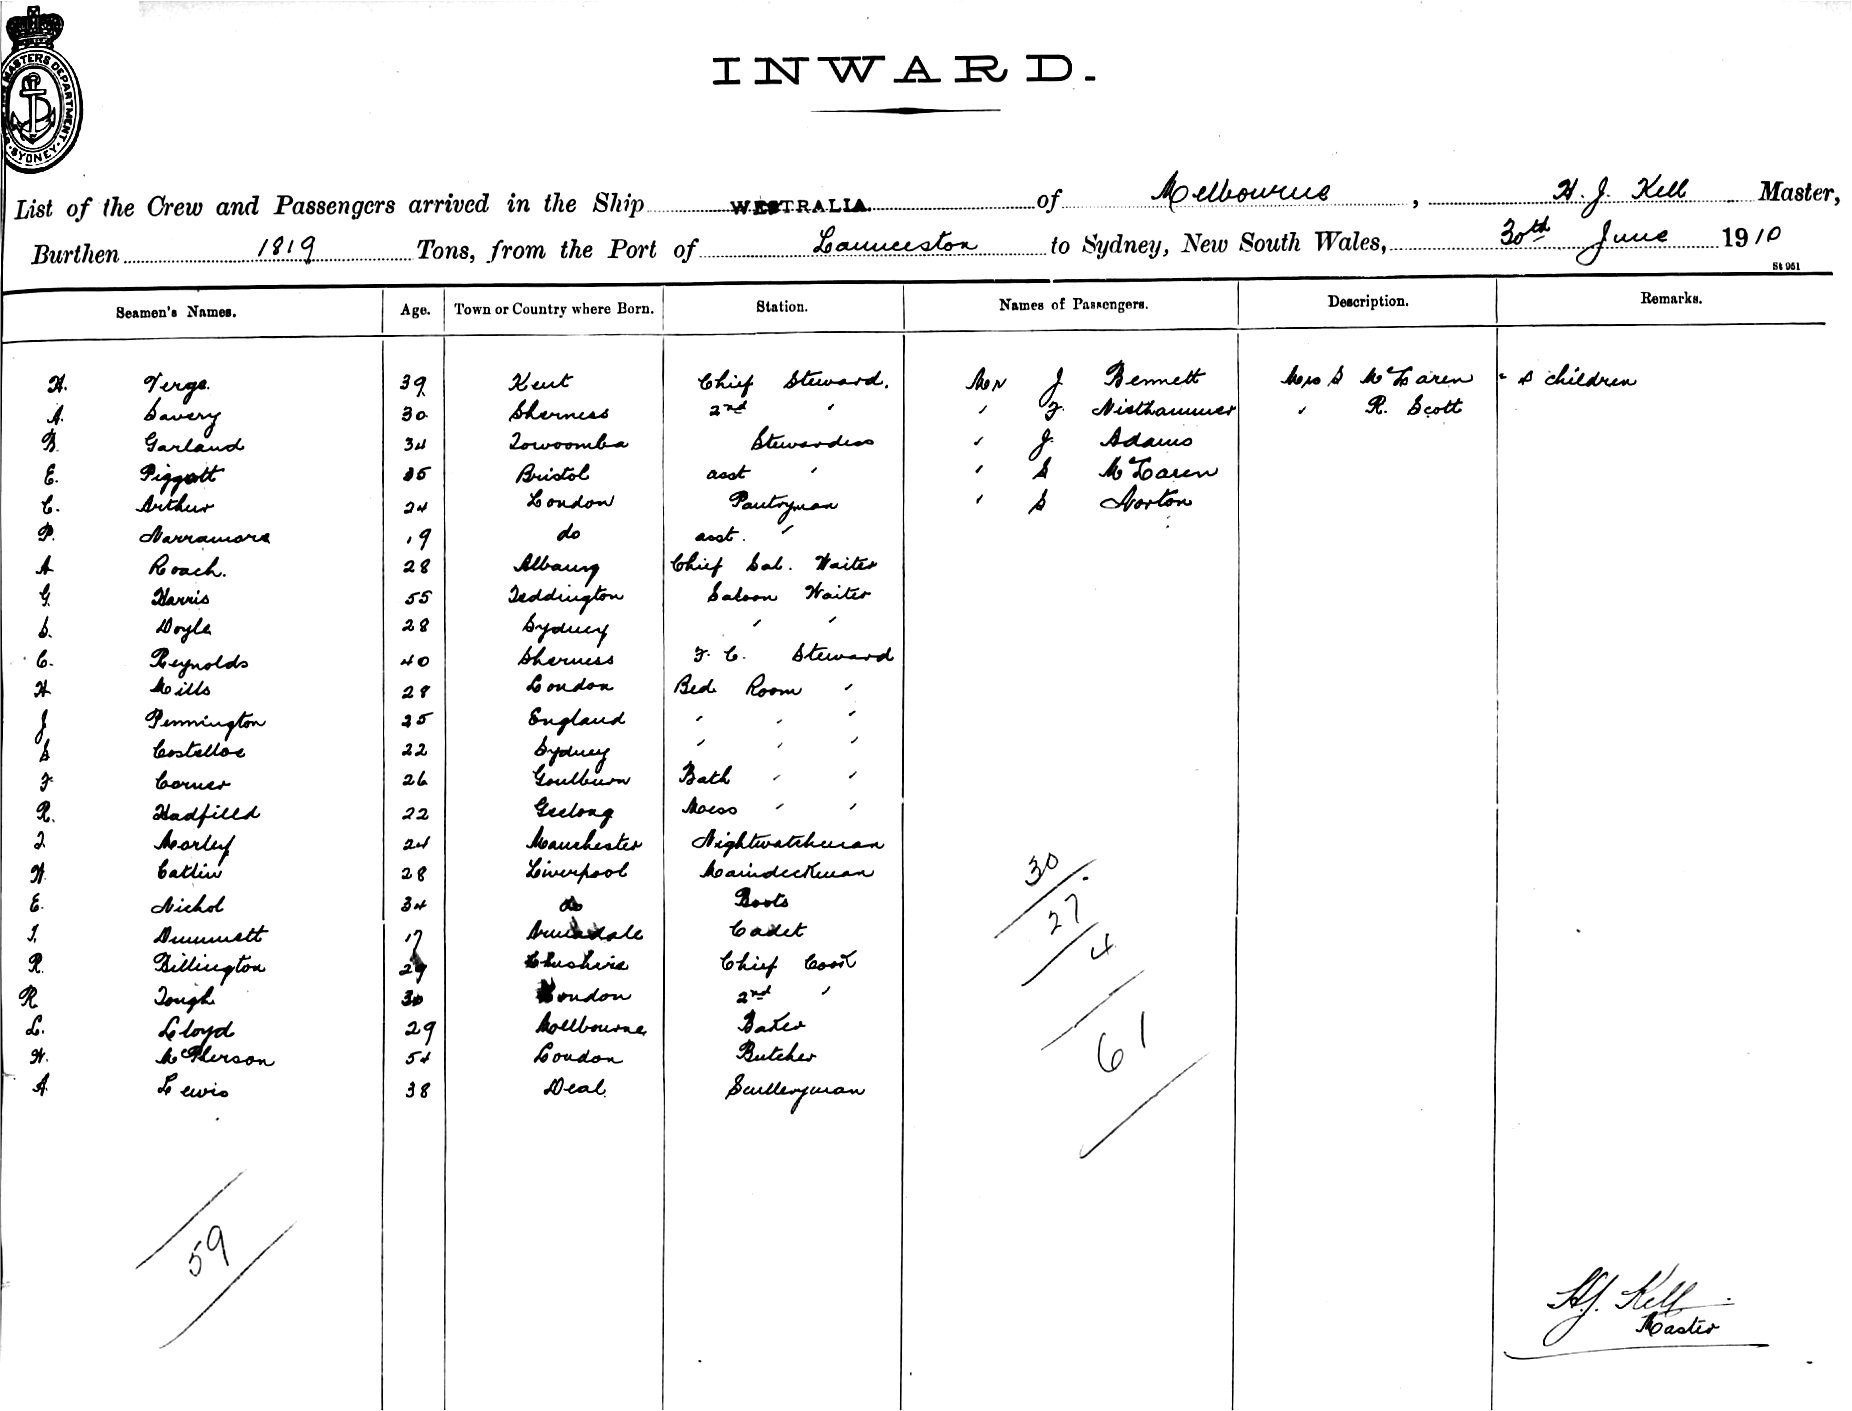 MASTERS DEPARTMENT SYDNEY
INWARD.
List of the Crew and Passengers arrived in the Ship WESTRALIA of Melbourne, H. J. Kell Master,
Burthen 1819 Tons, from the Port of Launceston to Sydney, New South Wales, 30th June 1910
St 951
Seamen's Names. Age. Town or Country where Born. Station. Names of Passengers. Description. Remarks.
H. Verge. 39 Kent Chief Steward. Mr J Bennett Mrs S McLaren " 2 children
A. Savery 30 Sherness 2nd " " F. Niethammer " R. Scott
B. Garland 34 Towoomba Stewardess " J. Adams
E. Piggott 35 Bristol asst " " S McLaren
C. Arthur 24 London Pantryman " S Norton
P. Narramore 19 do asst. "
A Roach. 28 Albany Chief Sal. Waiter
G. Harris 55 Teddington Saloon Waiter
S. Doyle 28 Sydney " "
C. Reynolds 40 Sherness F. C. Steward
H Mills 28 London Bed Room "
J Pennington 25 England " " "
S Costelloe 22 Sydney " " "
F Corner 26 Goulburn Bath " "
R. Hadfield 22 Geelong Mess " "
T Morley 24 Manchester Nightwatchman
W Catlin 28 Liverpool Maindeckman
E. Nichol 34 do Boots
T. Dummett 17 Armadale Cadet
R. Billington 29 Cheshire Chief Cook
R Tough 30 London 2nd "
L. Lloyd 29 Mellbourne Baker
W. McPherson 54 London Butcher
A Lewis 38 Deal. Sculleryman
30
27
4
61
59
H.J. Kell
Master